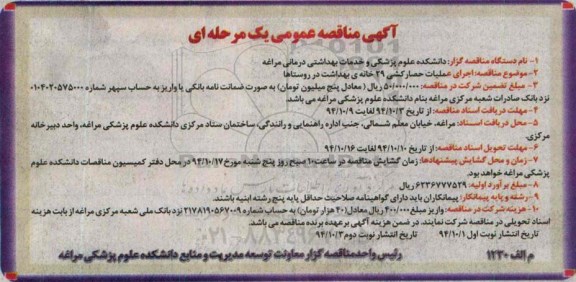 آگهی مناقصه عمومی یک مرحله ای
۱- نام دستگاه مناقصه گزار: دانشکده علوم پزشکی و خدمات بهداشتی درمانی مراغه
۲- موضوع مناقصه: اجرای عملیات حصارکشی ۲۹ خانه ی بهداشت در روستاها
۳- مبلغ تضمین شرکت در مناقصه: ۵۰/۰۰۰/۰۰۰ ریال ( معادل پنج میلیون تومان) به صورت ضمانت نامه بانکی یا واریز به حساب سپهر شماره ۰۱۰۴۰۲۰۵۷۵۰۰۰
نزد بانک صادرات شعبه مرکزی مراغه بنام دانشکده علوم پزشکی مراغه می باشد.
۴- مهلت دریافت اسناد مناقصه: از تاریخ ۹۴/۱۰/۳ لغایت ۹۴/۱۰/۹
۵- محل دریافت اسناد: مراغه، خیابان معلم شمالی، جنب اداره راهنمایی و رانندگی، ساختمان ستاد مرکزی دانشکده علوم پزشکی مراغه، واحد دبیرخانه
مرکزی.
۶- مهلت تحویل اسناد مناقصه: از تاریخ ۹۴/۱۰/۱۰ لغایت ۹۴/۱۰/۱۶
۷- زمان و محل گشایش پیشنهادها: زمان گشایش مناقصه در ساعت ۱۰ صبح روز پنج شنبه مورخ ۹۴/۱۰/۱۷ در محل دفتر کمیسیون مناقصات دانشکده علوم
پزشکی مراغه خواهد بود.
۸- مبلغ برآورد اولیه: ۶۲۳۶۷۷۷۵۲۹ ریال
۹- رشته و پایه پیمانکار: پیمانکاران باید دارای گواهینامه صلاحیت حداقل پایه پنج رشته ابنیه باشند.
۱۰- هزینه شرکت در مناقصه: واریز مبلغ ۴۰۰/۰۰۰ ریال معادل (۴۰ هزار تومان) به حساب شماره ۲۱۷۸۱۹۰۵۶۷۰۰۹ نزد بانک ملی شعبه مرکزی مراغه از بابت هزینه
اسناد تحویلی در مناقصه شرکت نمایند. در ضمن هزینه آگهی بر عهده برنده مناقصه می باشد.
تاریخ انتشار نوبت اول ۹۴/۱۰/۱ تاریخ انتشار نوبت دوم ۹۴/۱۰/۳
م الف ۱۲۳۰ رئیس واحد مناقصه گزار معاونت توسعه مدیریت و منابع دانشکده علوم پزشکی مراغه